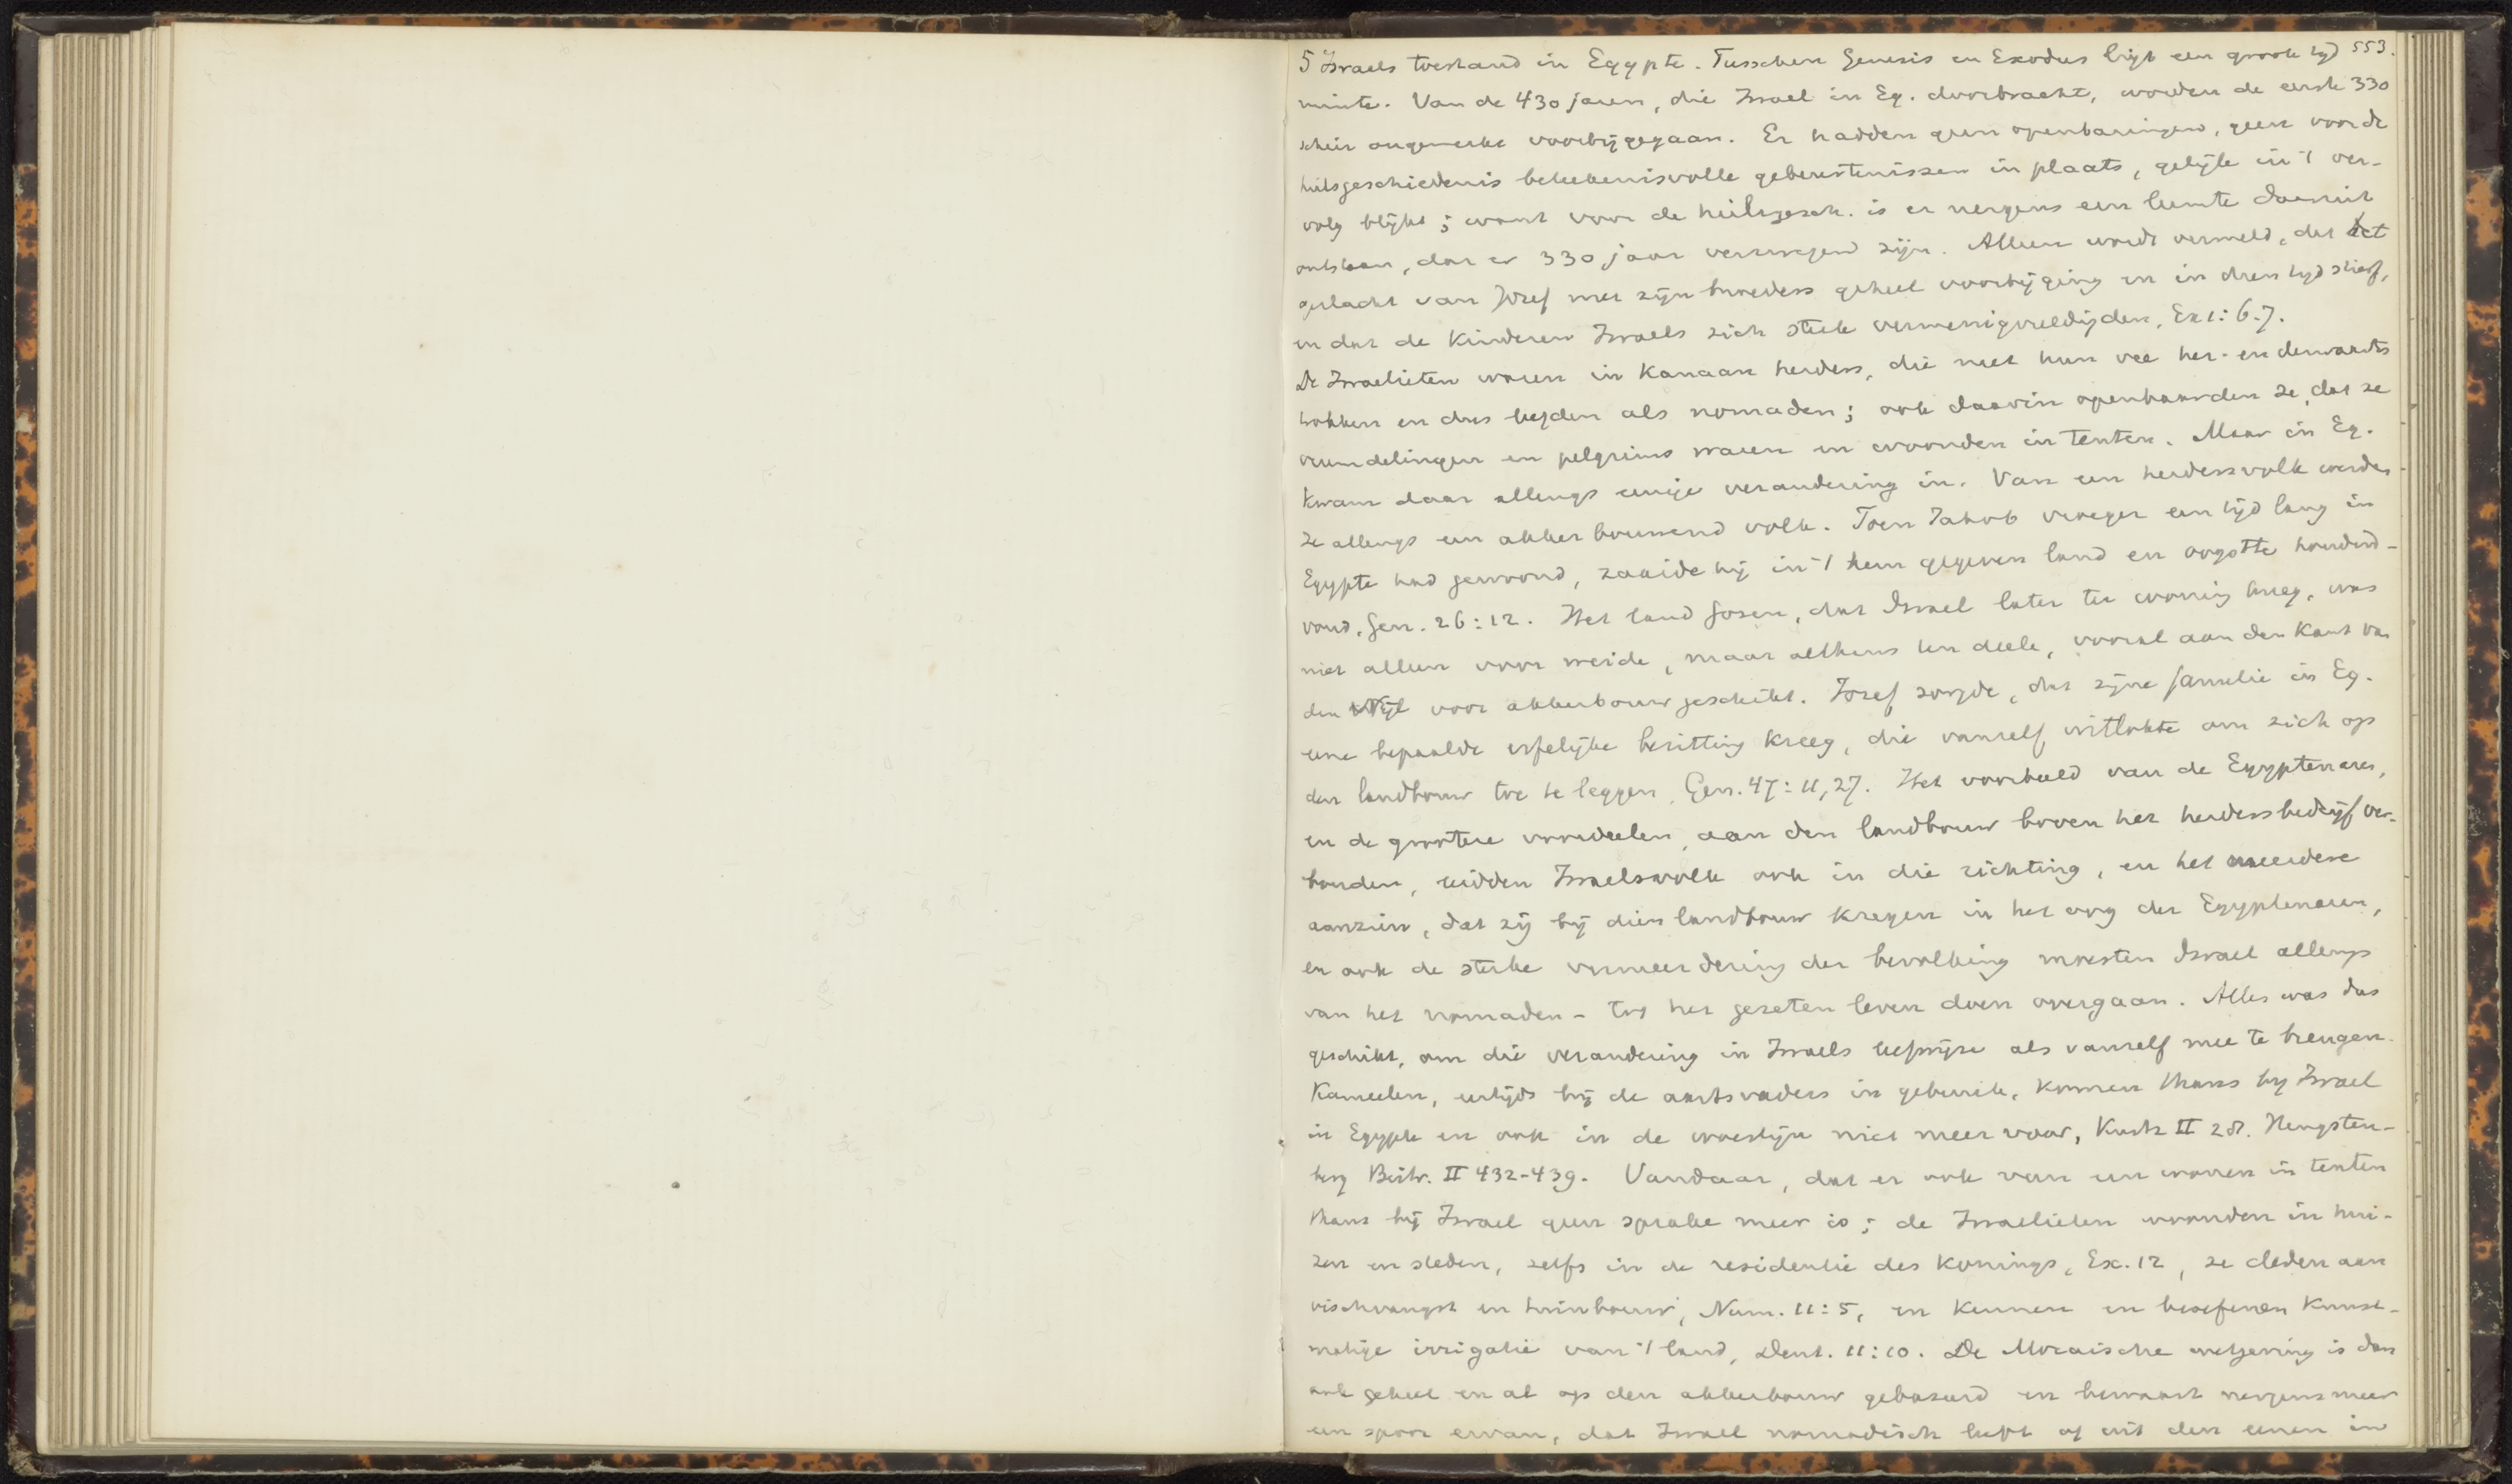 5 Israels toestand in Egypte. Tusschen Genesis en Exodus ligt een groote tyd 553.
ruimte. Van de 430 jaren, die Israel in Eg. doorbracht, worden de eerste 330
schier ongemerkt voorbijgegaan. Er hadden geen openbaringen, geen voor de
heilsgeschiedenis beteekenisvolle gebeurtenissen in plaats, gelijk in 't ver-
volg blijkt; want voor de heilsgesch. is er nergens een leemte daaruit
ontstaan, dat er 330 jaar verzwegen zijn. Alleen wordt vermeld, dat het
geslacht van Jozef met zijn broeders geheel voorbijging en in dien tyd stierf,
en dat de Kinderen Israels zich sterk vermenigvuldigden, Ex 1:6.7.
De Israelieten waren in Kanaan herders, die met hun vee her- en derwaarts
trokken en dus leefden als nomaden; ook daarin openbaarden ze, dat ze
vreemdelingen en pelgrims waren en woonden in tenten. Maar in Eg.
kwam daar allengs eenige verandering in. Van een herdersvolk werden
ze allengs een akkerbouwend volk. Toen Jakob vroeger een tijd lang in
Egypte had gewoond, zaaide hij in 't hem gegeven land en oogstte honderd-
voud, Gen. 26:12. Het land Gosen, dat Israel later ter woning kreeg, was
niet alleen voor weide, maar althans ten deele, vooral aan den kant van
den Nijl voor akkerbouw geschikt. Jozef zorgde, dat zijne familie in Eg.
eene bepaalde erfelijke bezitting kreeg, die vanzelf uitlokte om zich op
den landbouw toe te leggen, Gen. 47:11,27. Het voorbeeld van de Egyptenaren,
en de grootere voordeelen, aan den landbouw boven het herdersbedrijf ver-
bonden, leidden Israelsvolk ook in die richting, en het meerdere
aanzien, dat zij bij dien landbouw kregen in het oog der Egyptenaren,
en ook de sterke vermeerdering der bevolking moesten Israel allengs
van het nomaden- tot het gezeten leven doen overgaan. Alles was dus
geschikt, om die verandering in Israels leefwijze als vanzelf mee te brengen.
Kameelen, eertijds bij de aartsvaders in gebruik, komen thans by Israel
in Egypte en ook in de woestijn niet meer voor, Kurtz II 28. Hengsten-
berg Beitr. II 432-439. Vandaar, dat er ook van een wonen in tenten
thans bij Israel geen sprake meer is; de Israelieten woonden in hui-
zen en steden, zelfs in de residentie des konings, Ex. 12, ze deden aan
vischvangst en tuinbouw, Num. 11:5, en kennen en beoefenen kunst-
matige irrigatie van 't land, Deut. 11:10. De Mozaische wetgeving is dan
ook geheel en al op den akkerbouw gebaseerd en bewaart nergens meer
een spoor ervan, dat Israel nomadisch leeft of uit den eenen in